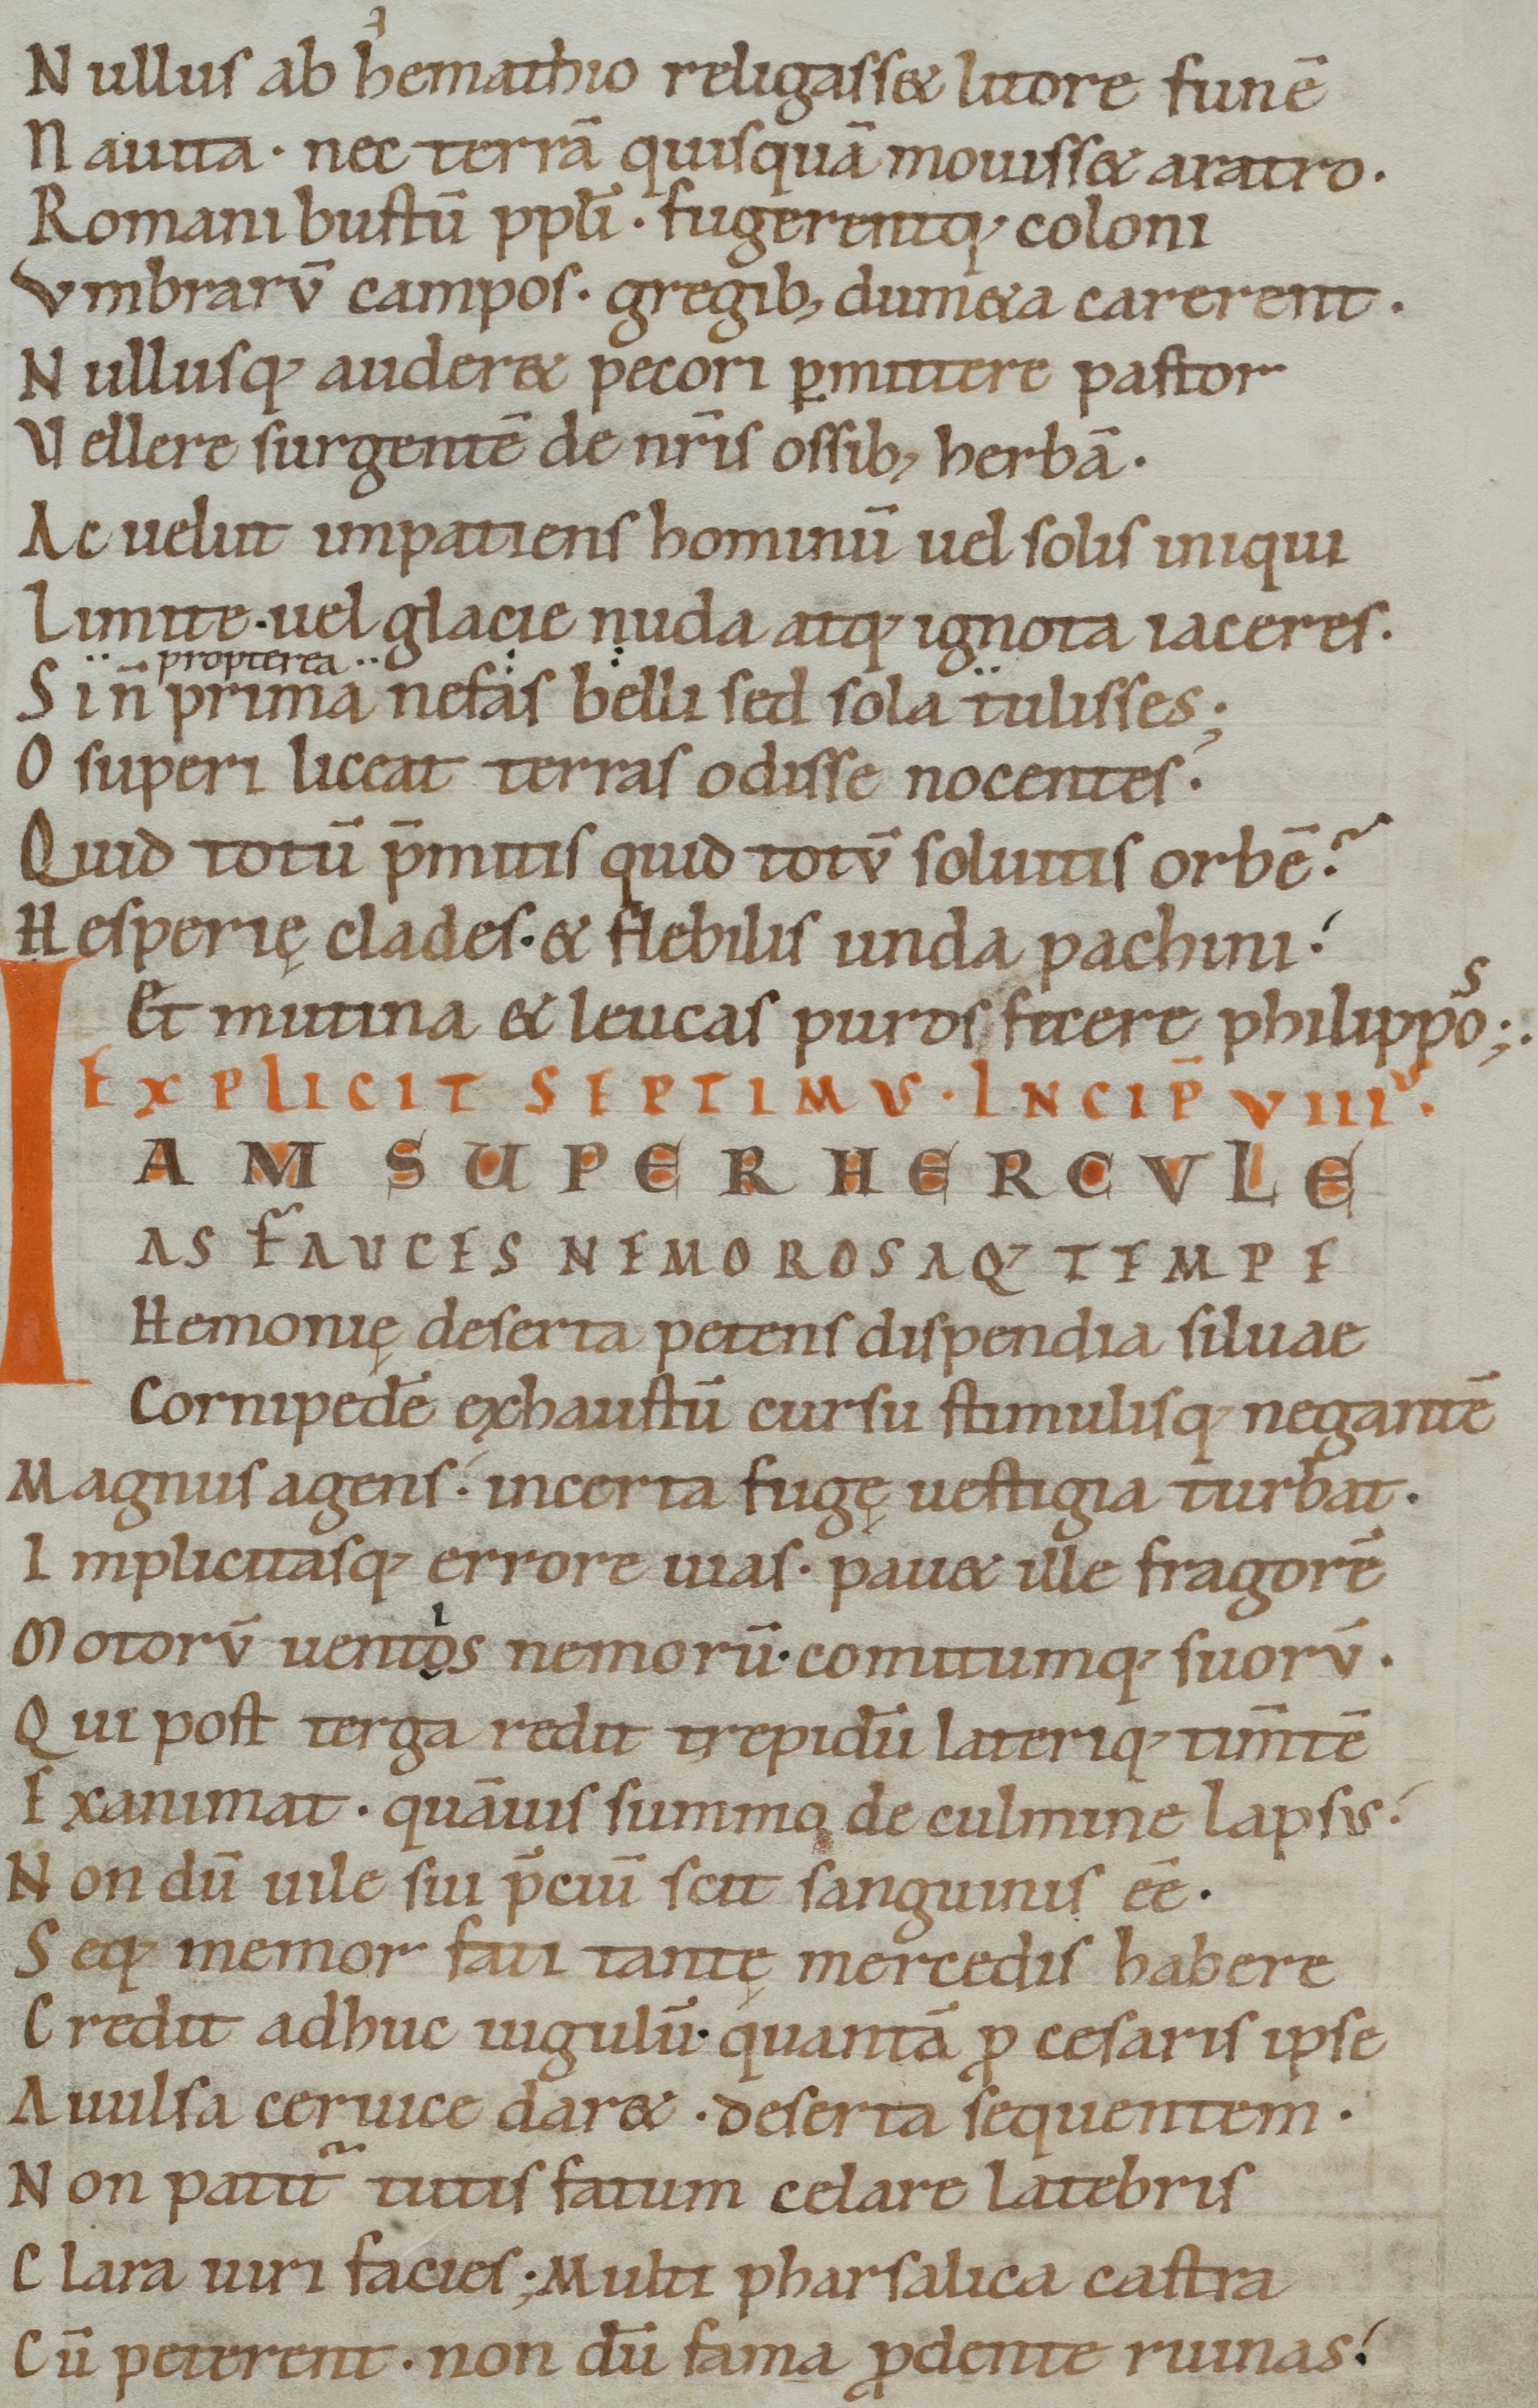 Nullus ab hemathio religass& litore funē
Nauita · nec terrā quisquā mouiss& aratro.
Romani bustū ppl̄i · fugerentq; coloni
Vmbrarū campos · gregib; dum&a carerent.
Nullusq; auder& pecori p̱mittere pastor
Vellere surgentē de nr̄is ossib; herbā.
Ac uelut impatiens hominū uel solis iniqui
Limite · uel glacie nuda atq; ignota iaceres.
propterea
Si n̄ prima nefas belli sed sola tulisses;
O superi liceat terras odisse nocentes.
Quid totū p̄mitis quid totū soluitis orbē?
Hesperię clades · & flebilis unda pachini.
Et mutina & leucas puros fecere philippos;.
EXPLICIT SEPTIMVS · INCIP̄ VIIIᵛˢ.
IAM SUPER HERCVLE
AS FAUCES NEMOROSAQ; TEMPE
Hemonię deserta petens dispendia siluae
Cornipedē exhaustū cursu stimulisq; negantē
Magnus agens. incerta fugę uestigia turbat.
Implicitasq; errore uias · pau& ille fragorē
Motorū uentos nemorū · comitumq; suorū.
Qui post terga redit trepidū lateriq; tim̄tē
Exanimat · quāuis summo de culmine lapsus.
Non dū uile sui p̄ciū scit sanguinis ēē.
Seq; memor fati tantę mercedis habere
Credit adhuc iugulū · quantā ꝓ cesaris ipse
Auulsa ceruice dar& · deserta sequentem.
Non patit̄ tutis fatum celare latebris
Clara uiri facies; Multi pharsalica castra
Cū peterent · non dū fama ꝓdente ruinas.